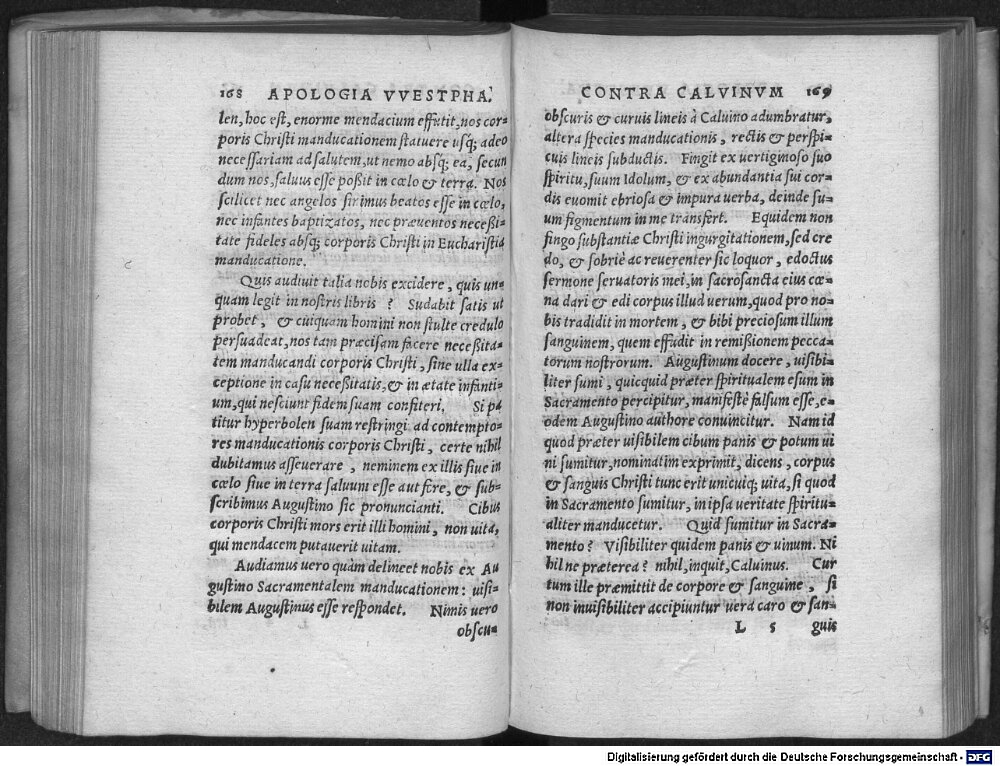 168 APOLOGIA VVESTPHA.
len, hoc est, enorme mendacium effutit, nos cor=
poris Christi manducationem statuere usq; adeo
necessariam ad salutem, ut nemo absq; ea, secun
dum nos, saluus esse poßit in cœlo & terra. Nos
scilicet nec angelos sinimus beatos esse in cœlo,
nec infantes baptizatos, nec præuentos neceßi=
tate fideles absq; corporis Christi in Eucharistia
manducatione.
Quis audiuit talia nobis excidere, quis un=
quam legit in nostris libris? Sudabit satis ut
probet, & cuiquam homini non stulte credulo
persuadeat, nos tam præcisam facere neceßita=
tem manducandi corporis Christi, sine ulla ex=
ceptione in casu neceßitatis, & in ætate infanti=
um, qui nesciunt fidem suam confiteri. Si pa
titur hyperbolen suam restringi ad contempto=
res manducationis corporis Christi, certe nihil
dubitamus asseuerare, neminem ex illis siue in
cœlo siue in terra saluum esse aut fore, & sub=
scribimus Augustino sic pronuncianti. Cibus
corporis Christi mors erit illi homini, non uita,
qui mendacem putauerit uitam.
Audiamus uero quàm delineet nobis ex Au
gustino Sacramentalem manducationem: uisi=
bilem Augustinus esse respondet. Nimis uero
obscu=
CONTRA CALVINVM 169
obscuris & curuis lineis à Caluino adumbratur,
altera species manducationis, rectis & perspi=
cuis lineis subductis. Fingit ex uertiginoso suo
spiritu, suum Idolum, & ex abundantia sui cor=
dis euomit ebriosa & impura uerba, deinde su=
um figmentum in me transfert. Equidem non
fingo substantiæ Christi ingurgitationem, sed cre
do, & sobriè ac reuerenter sic loquor, edoctus
sermone seruatoris mei, in sacrosancta eius cœ=
na dari & edi corpus illud uerum, quod pro no=
bis tradidit in mortem, & bibi preciosum illum
sanguinem, quem effudit in remißionem pecca=
torum nostrorum. Augustinum docere, uisibi=
liter sumi, quicquid præter spiritualem esum in
Sacramento percipitur, manifestè falsum esse, e=
odem Augustino authore conuincitur. Nam id
quod præter uisibilem cibum panis & potum ui
ni sumitur, nominatim exprimit, dicens, corpus
& sanguis Christi tunc erit unicuiq; uita, si quod
in Sacramento sumitur, in ipsa ueritate spiritu=
aliter manducetur. Quid sumitur in Sacra=
mento? Visibiliter quidem panis & uinum. Ni
hil ne præterea? nihil, inquit, Caluinus. Cur
tum ille præmittit de corpore & sanguine, si
non inuisibiliter accipiuntur uera caro & san=
L 5 guis
Digitalisierung gefördert durch die Deutsche Forschungsgemeinschaft - DFG